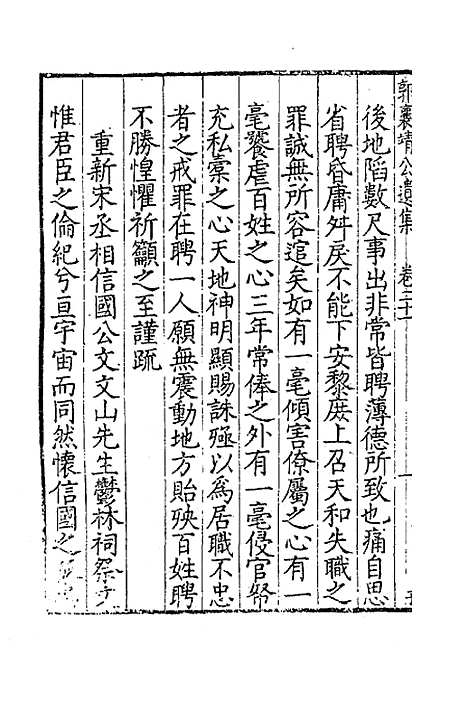 郭襄靖公遺集　卷二十
後地陷數尺事出非常皆聘薄德所致也痛自思
省聘昏庸舛戾不能下安黎庶上召天和失職之
罪誠無所容逭矣如有一毫傾害僚屬之心有一
毫饕虐百姓之心三年常俸之外有一毫侵官帑
充私橐之心天地神明顯賜誅殛以為居職不忠
者之戒罪在聘一人願無震動地方貽殃百姓聘
不勝惶懼祈籲之至謹䟽
重新宋丞相信國公文文山先生鬱林祠祭文
惟君臣之倫紀兮亘宇宙而同然懷信國之